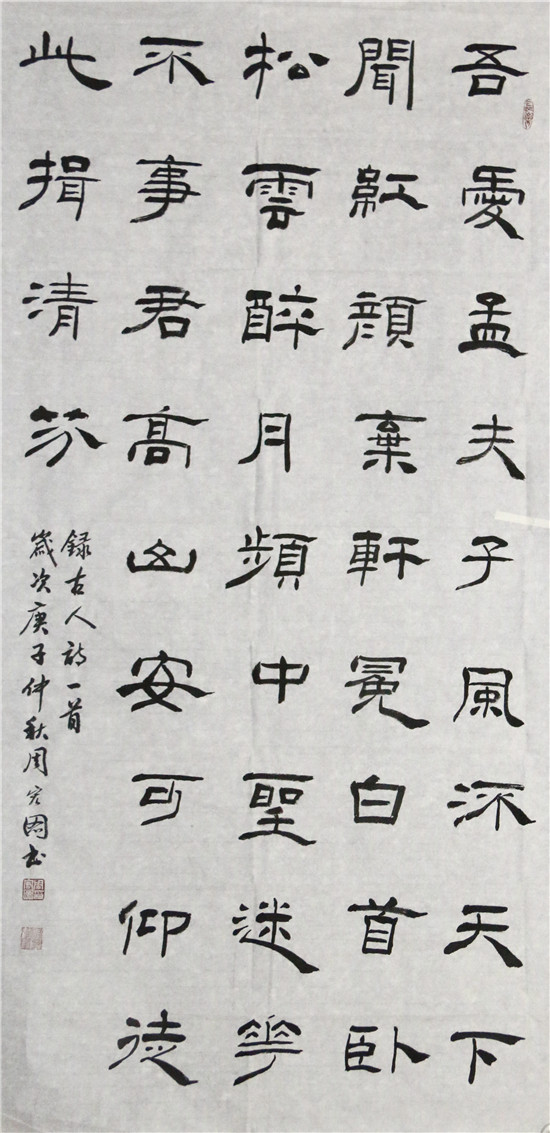 吾愛孟夫子風流天下
聞紅顔棄軒冕白首卧
松雲醉月頻中聖迷花
不事君高山安可仰徒
此揖清芬
録古人詩一首
歲次庚子仲秋周國书